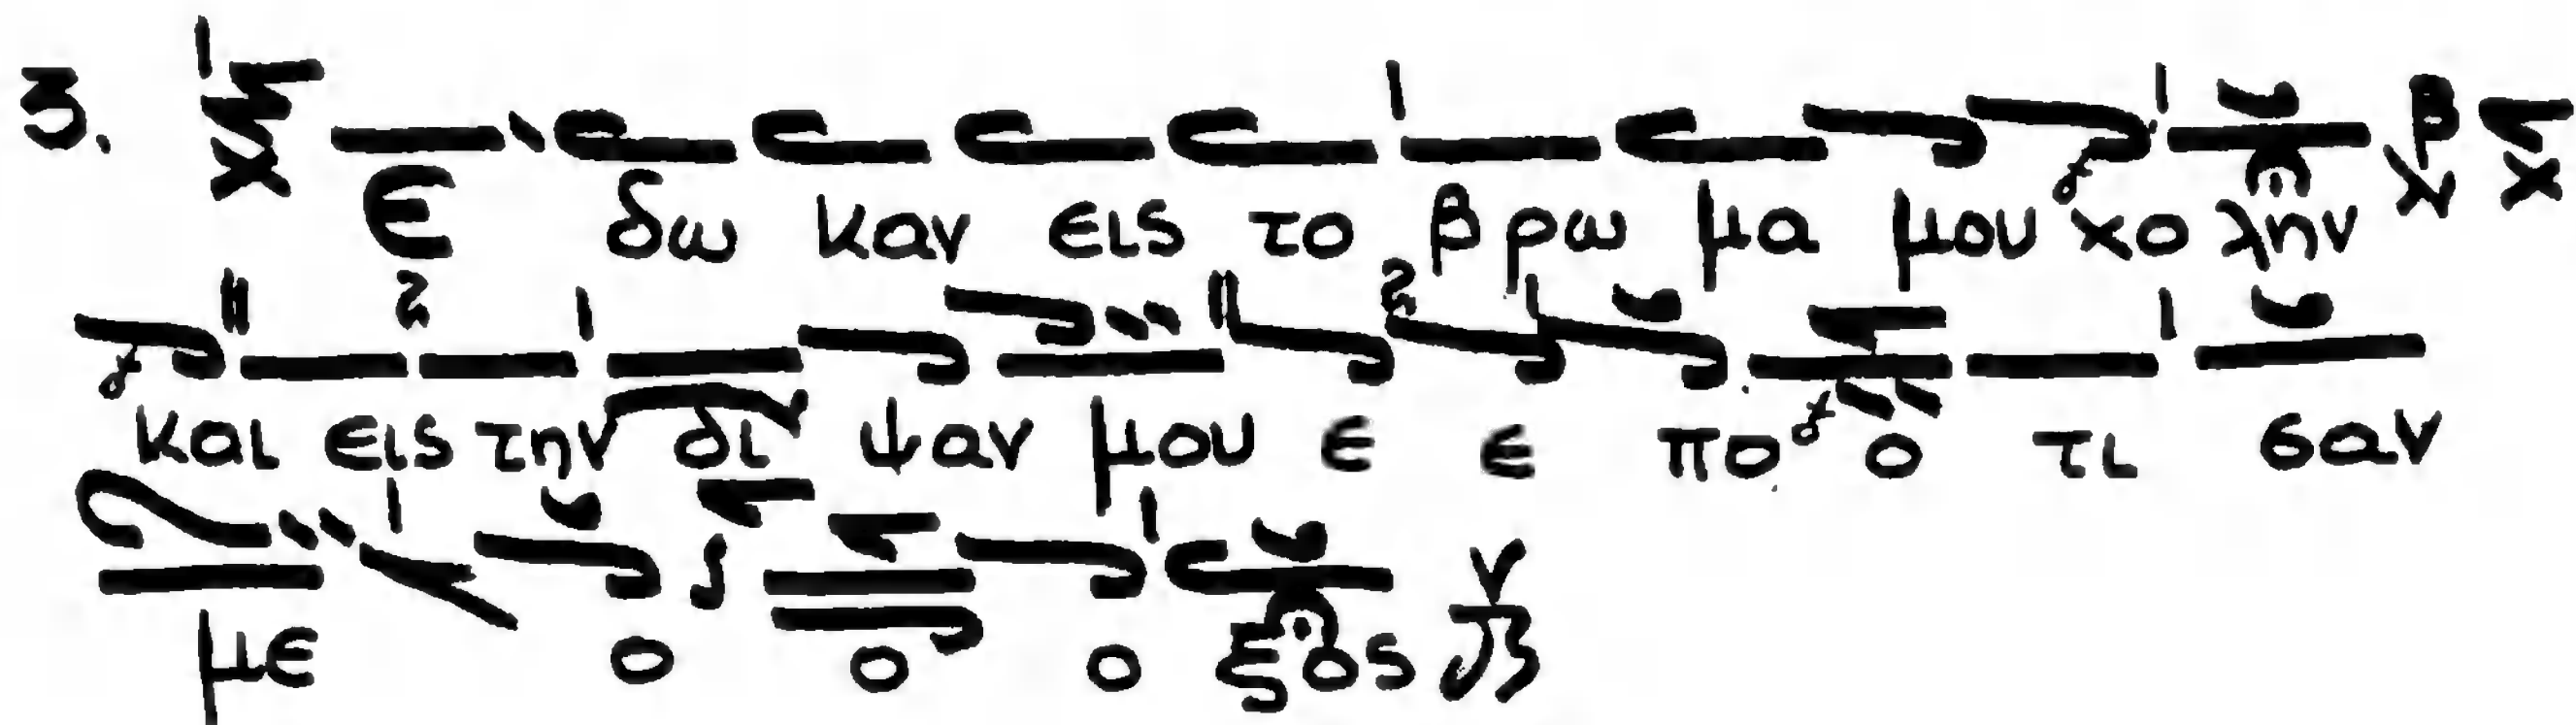 3. Ε δω καν εις το βρω μα μου χο λην
και εις την δι ψαν μου ε ε πο ο τι σαν
με ο ο ο ξος